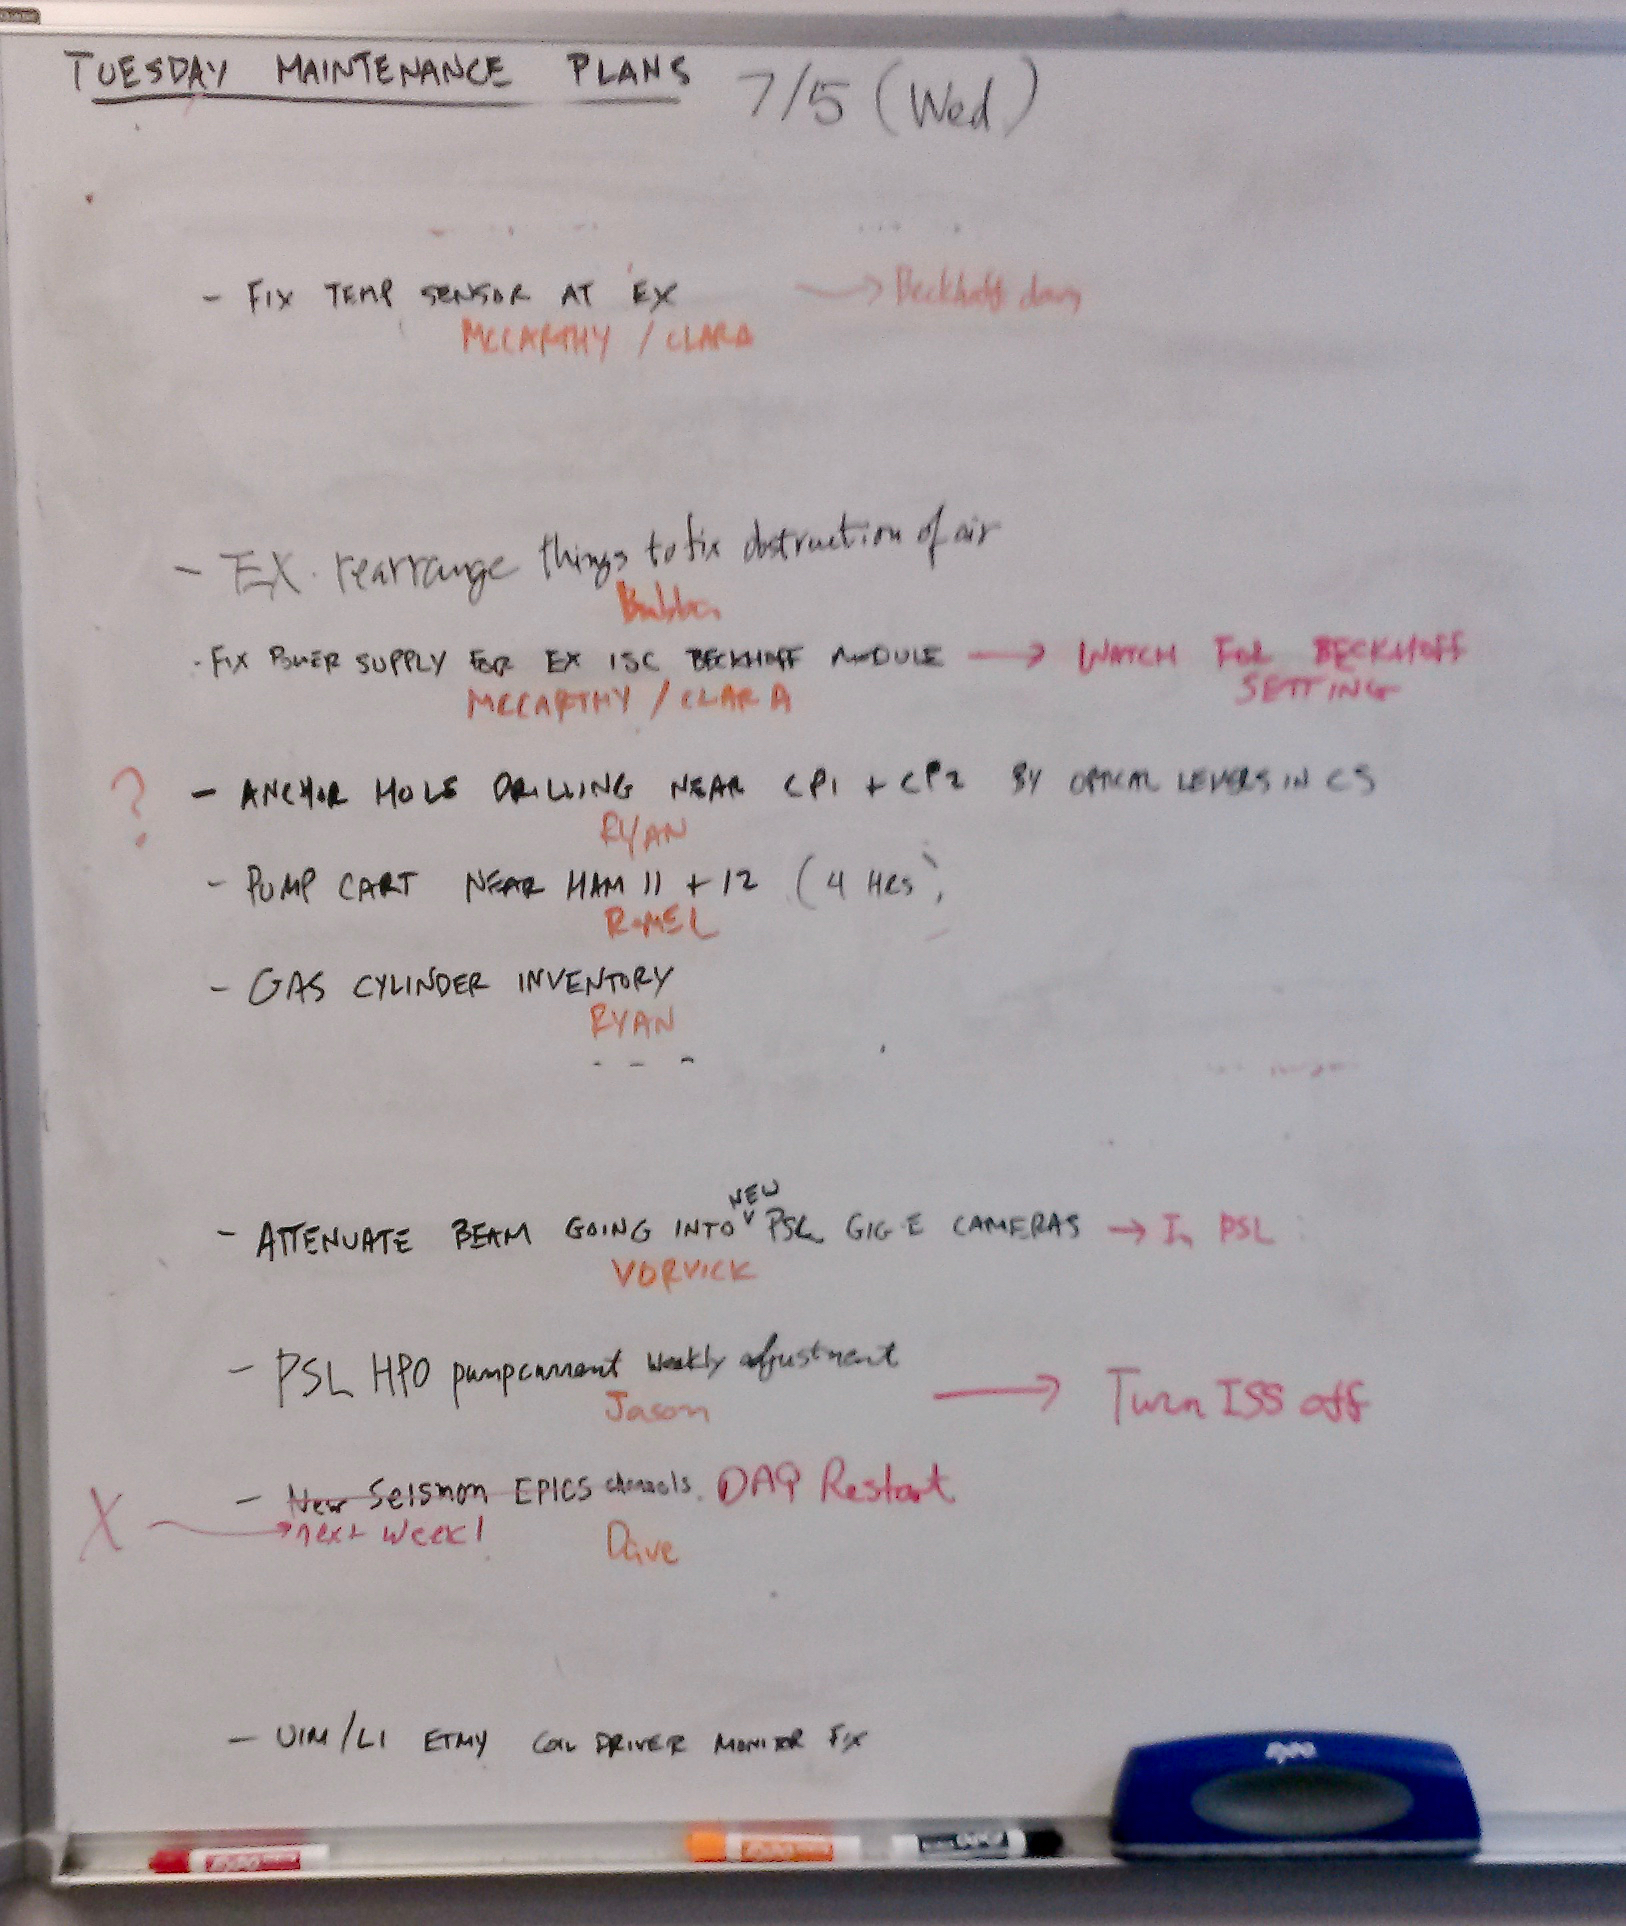 TUESDAY MAINTENANCE PLANS 7/5 (Wed)
- FIX TEMP SENSOR AT EX → Beckhoff down
MCCARTHY / CLARA
- EX. rearrange things to fix obstruction of air
Bubba
- FIX POWER SUPPLY FOR EX ISC BECKHOFF MODULE → WATCH FOR BECKHOFF
SETTING
MCCARTHY / CLARA
? - ANCHOR HOLE DRILLING NEAR CP1 + CP2 BY OPTICAL LEVERS IN CS
RYAN
- PUMP CART NEAR HAM 11 + 12 (4 HRS)
ROMEL
- GAS CYLINDER INVENTORY
RYAN
NEW
- ATTENUATE BEAM GOING INTO PSL GIG-E CAMERAS → In PSL
VORVICK
- PSL HPO pump current weekly adjustment
Jason → Turn ISS off
X - New Seismon EPICS channels. DAQ Restart
→ next week!
Dave
- UIM/L1 ETMY COIL DRIVER MONITOR FIX
EXPO